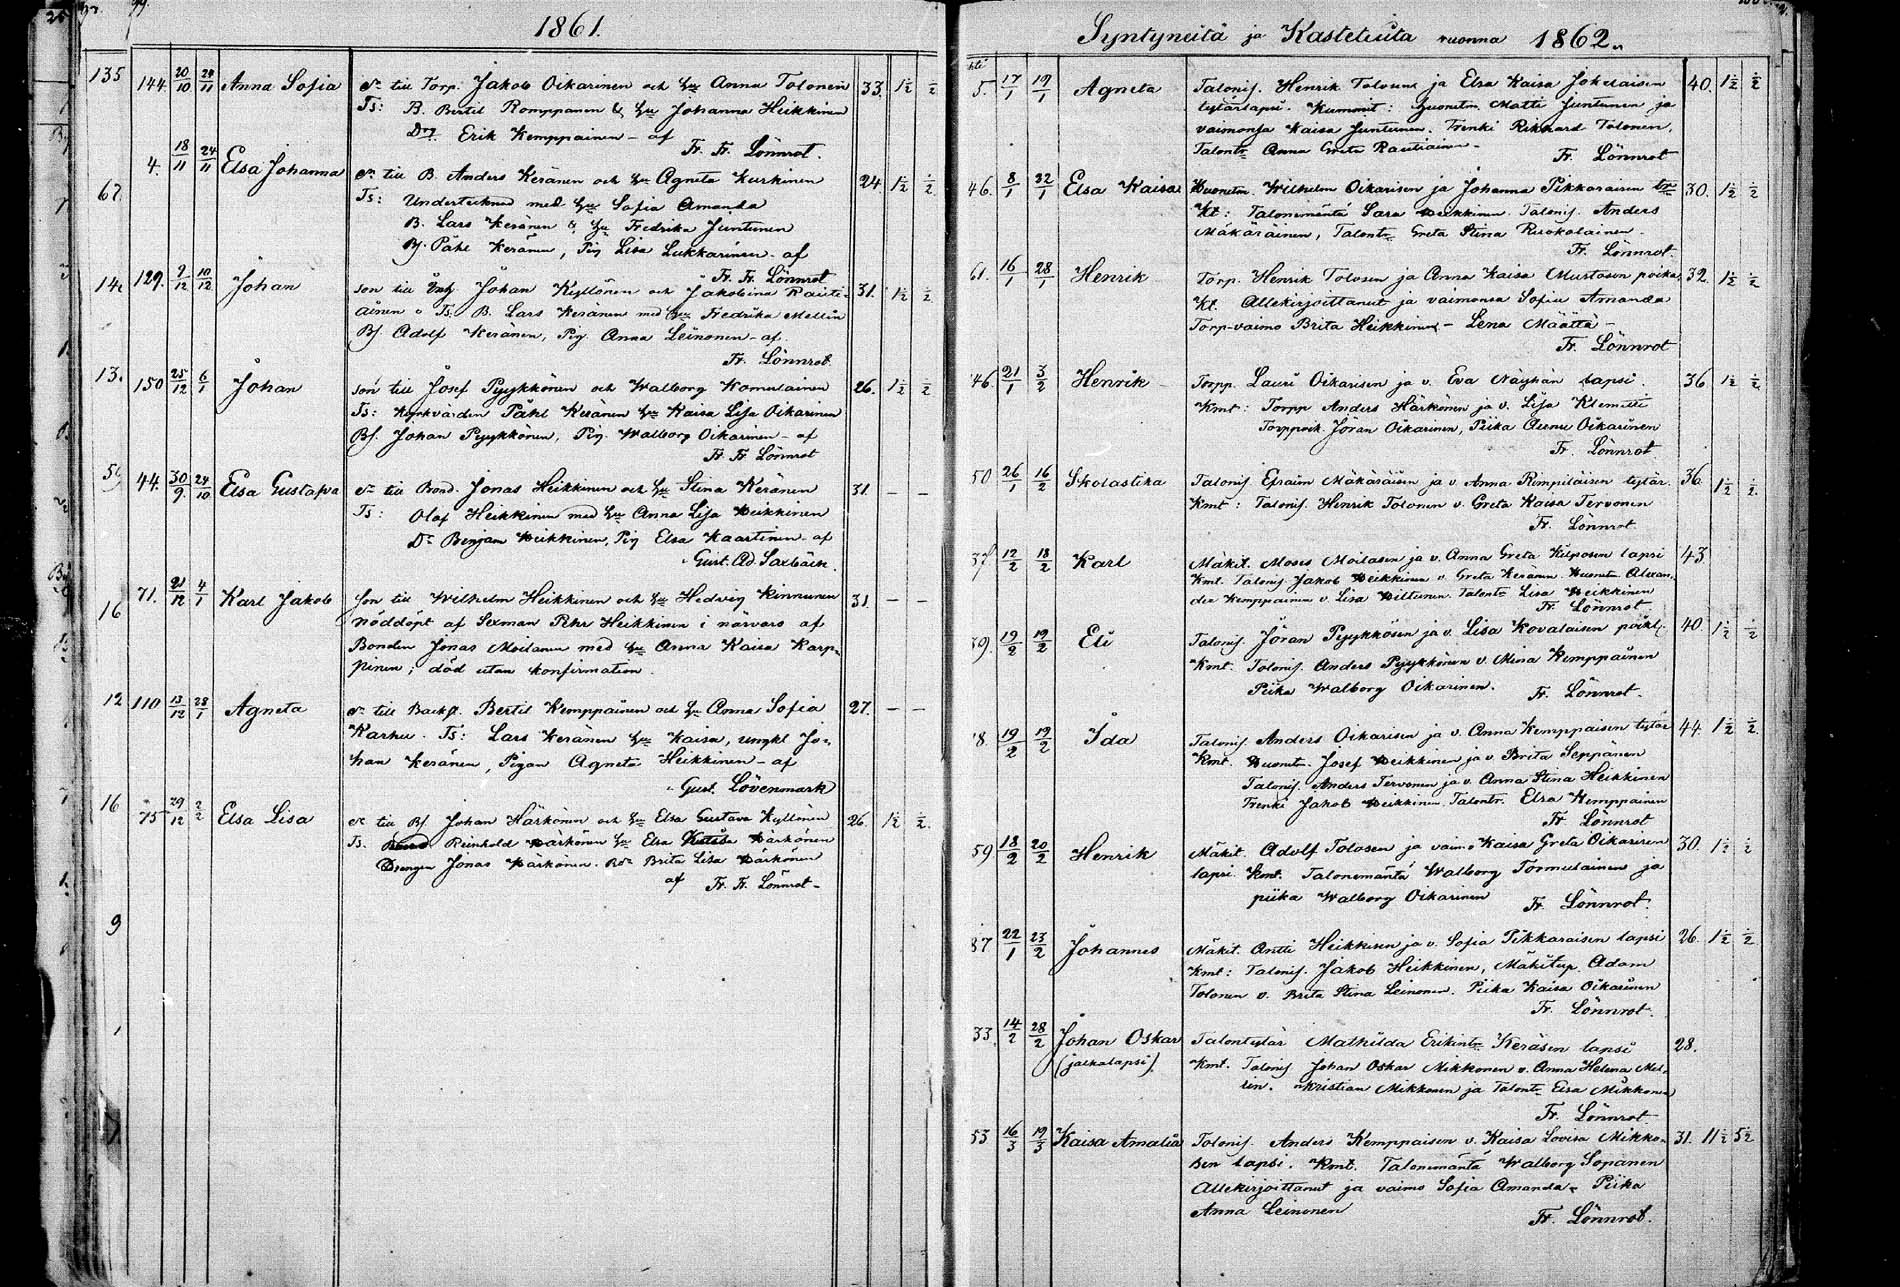 1861.
135 144. 20/10 24/11 Anna Sofia dr till Torp. Jakob Oikarinen och hu Anna Tolonen 33. 1½ ½
Ts: B. Bertil Romppanen & hu Johanna Heikkinen
Drg Erik Kemppainen – af
Fr. Fr. Lönnrot.
4. 18/11 24/11 Elsa Johanna dr till B. Anders Keränen och hu Agneta Kurkinen 24 1½ ½
67. Ts: Undertecknad med hu Sofia Amanda
B. Lars Keränen & hu Fredrika Juntunen
Bf. Påhl Keränen, Pig Lisa Lukkarinen – af
Fr. Fr. Lönnrot
14. 129. 9/12 10/12 Johan son till Johan Kyllönen och Jakobina Rauti- 31. 1½ ½
äinen Ts. B. Lars Keränen med hu Fredrika Mellin
Bf. Adolf Keränen, Pig. Anna Leinonen – af.
Fr. Lönnrot
13. 150 25/12 6/1 Johan son till Josef Pyykkönen och Walborg Komulainen 26. 1½ ½
Ts: Kyrkvärden Påhl Keränen hu Kaisa Lisa Oikarinen
Bf. Johan Pyykkönen, Pig. Walborg Oikarinen – af
Fr. Fr. Lönnrot
44. 30/9 24/10 Elsa Gustafva dr till Bond. Jonas Heikkinen och hu Stina Keränen 31. – –
Ts: Olof Heikkinen med hu Anna Lisa Heikkinen
Dr Benjam Heikkinen, Pig Elsa Kaartinen – af
Gust. Ad. Saxbäck.
16 71. 21/12 4/1 Karl Jakob son till Wilhelm Heikkinen och hu Hedvig Kinnunen 31. – –
nöddöpt af Sexman Pehr Heikkinen i närvaro af
Bonden Jonas Moilanen med hu Anna Kaisa Karp-
pinen; död utan konfirmation.
12 110 13/12 28/1 Agneta dr till Backst. Bertil Kemppainen och hu Anna Sofia 27. – –
Karhu. Ts: Lars Keränen hu Kaisa, ungkl Jo-
han Keränen, Pigan Agneta Heikkinen – af
Gust. Lövenmark
16 75 29/12 2/2 Elsa Lisa dr till Bf. Johan Härkönen och hu Elsa Gustava Kyllönen 26. 1½ ½.
Ts. Reinhold Härkönen hu Elsa Härkönen
Drengen Jonas Härkönen. Brita Lisa Härkönen
af Fr. Fr. Lönnrot –
9
Syntyneitä ja Kastetuita vuonna 1862.
5. 17/1 19/1 Agneta Talonif. Henrik Tolosen ja Elsa Kaisa Jokelaisen 40. 1½ ½
tytärlapsi. Kummit: huonetm. Matti Juntunen ja
vaimonsa Kaisa Juntunen. Trenki Rikhard Tolonen,
Talontr Anna Greta Rautiainen –
Fr. Lönnrot
46. 8/1 22/1 Elsa Kaisa Huonetm. Wilhelm Oikarisen ja Johanna Pikkaraisen 30. 1½ ½
Kt: Talonemäntä Sara Heikkinen. Talonif. Anders
Mäkäräinen, Talontr Greta Stina Ruokolainen.
Fr. Lönnrot.
61. 16/1 28/1 Henrik Torp. Henrik Tolosen ja Anna Kaisa Mustosen poika 32. 1½ ½
Kt. Allekirjoittanut ja vaimonsa Sofia Amanda
Torp-vaimo Brita Heikkinen – Lena Määttä –
Fr. Lönnrot
46. 21/1 3/2 Henrik Torpp. Lauri Oikarisen ja v. Eva Näyhän lapsi. 36 1½ ½
Kmt: Torpp Anders Härkönen ja v. Lisa Klemetti
Torppoik. Jöran Oikarinen, Piika Oikarinen
Fr. Lönnrot.
50 26/1 16/2 Skolastika Talonif Efraim Mäkäräisen ja v. Anna Rimpiläisen tytär. 36. 1½ ½.
Kmt: Talonif. Henrik Tolonen v. Greta Kaisa Tervonen
Fr. Lönnrot.
37 12/2 18/2 Karl Mäkit. Moses Moilasen ja v. Anna Greta Kilposen lapsi 43.
Kmt. Talonif Jakob Heikkinen v. Greta Keränen. Huonetm Alexan-
der Kemppainen v. Lisa Hiltunen. Talontr Lisa Heikkinen
Fr. Lönnrot
59. 19/2 19/2 Eli Talonif. Jöran Pyykkösen ja v. Lisa Kovalaisen poikl. 40. 1½ ½
Kmt. Talonif. Anders Pyykkönen v. Mina Kemppainen
Piika Walborg Oikarinen. Fr. Lönnrot.
8. 19/2 19/2 Ida Talonif. Anders Oikarisen ja v. Anna Kemppaisen tytär 44. 1½ ½
Kmt. Huonetm. Josef Heikkinen ja v. Brita Seppänen
Talonif. Anders Tervonen ja v. Anna Stina Heikkinen
Trenki Jakob Heikkinen. Talontr. Elsa Kemppainen
Fr. Lönnrot
59. 18/2 20/2 Henrik Mäkit. Adolf Tolosen ja vaimo Kaisa Greta Oikarisen 30. 1½ ½
lapsi Kmt. Talonemäntä Walborg Tormulainen ja
piika Walborg Oikarinen Fr. Lönnrot.
87 22/1 23/2 Johannes Mäkit. Antti Heikkisen ja v. Sofia Pikkaraisen lapsi 26. 1½ ½
Kmt: Talonif. Jakob Heikkinen, Mäkitup. Adam
Tolonen v. Brita Stina Leinonen. Piika Kaisa Oikarinen
Fr. Lönnrot.
33 14/2 28/2 Johan Oskar Talontytär Mathilda Erikintr Keräsen lapsi 28.
(jalkalapsi). Kmt. Talonif Johan Oskar Mikkonen v. Anna Helena Mel-
lin. Kristian Mikkonen ja Talontr Elsa Mikkonen
Fr. Lönnrot
53 16/3 19/3 Kaisa Amalia Talonif. Anders Kemppaisen v. Kaisa Lovisa Mikko- 31. 11½ 5½
sen lapsi. Kmt. Talonemäntä Walborg Sopanen
Allekirjoittanut ja vaimo Sofia Amanda. Piika
Anna Leinonen
Fr. Lönnrot.